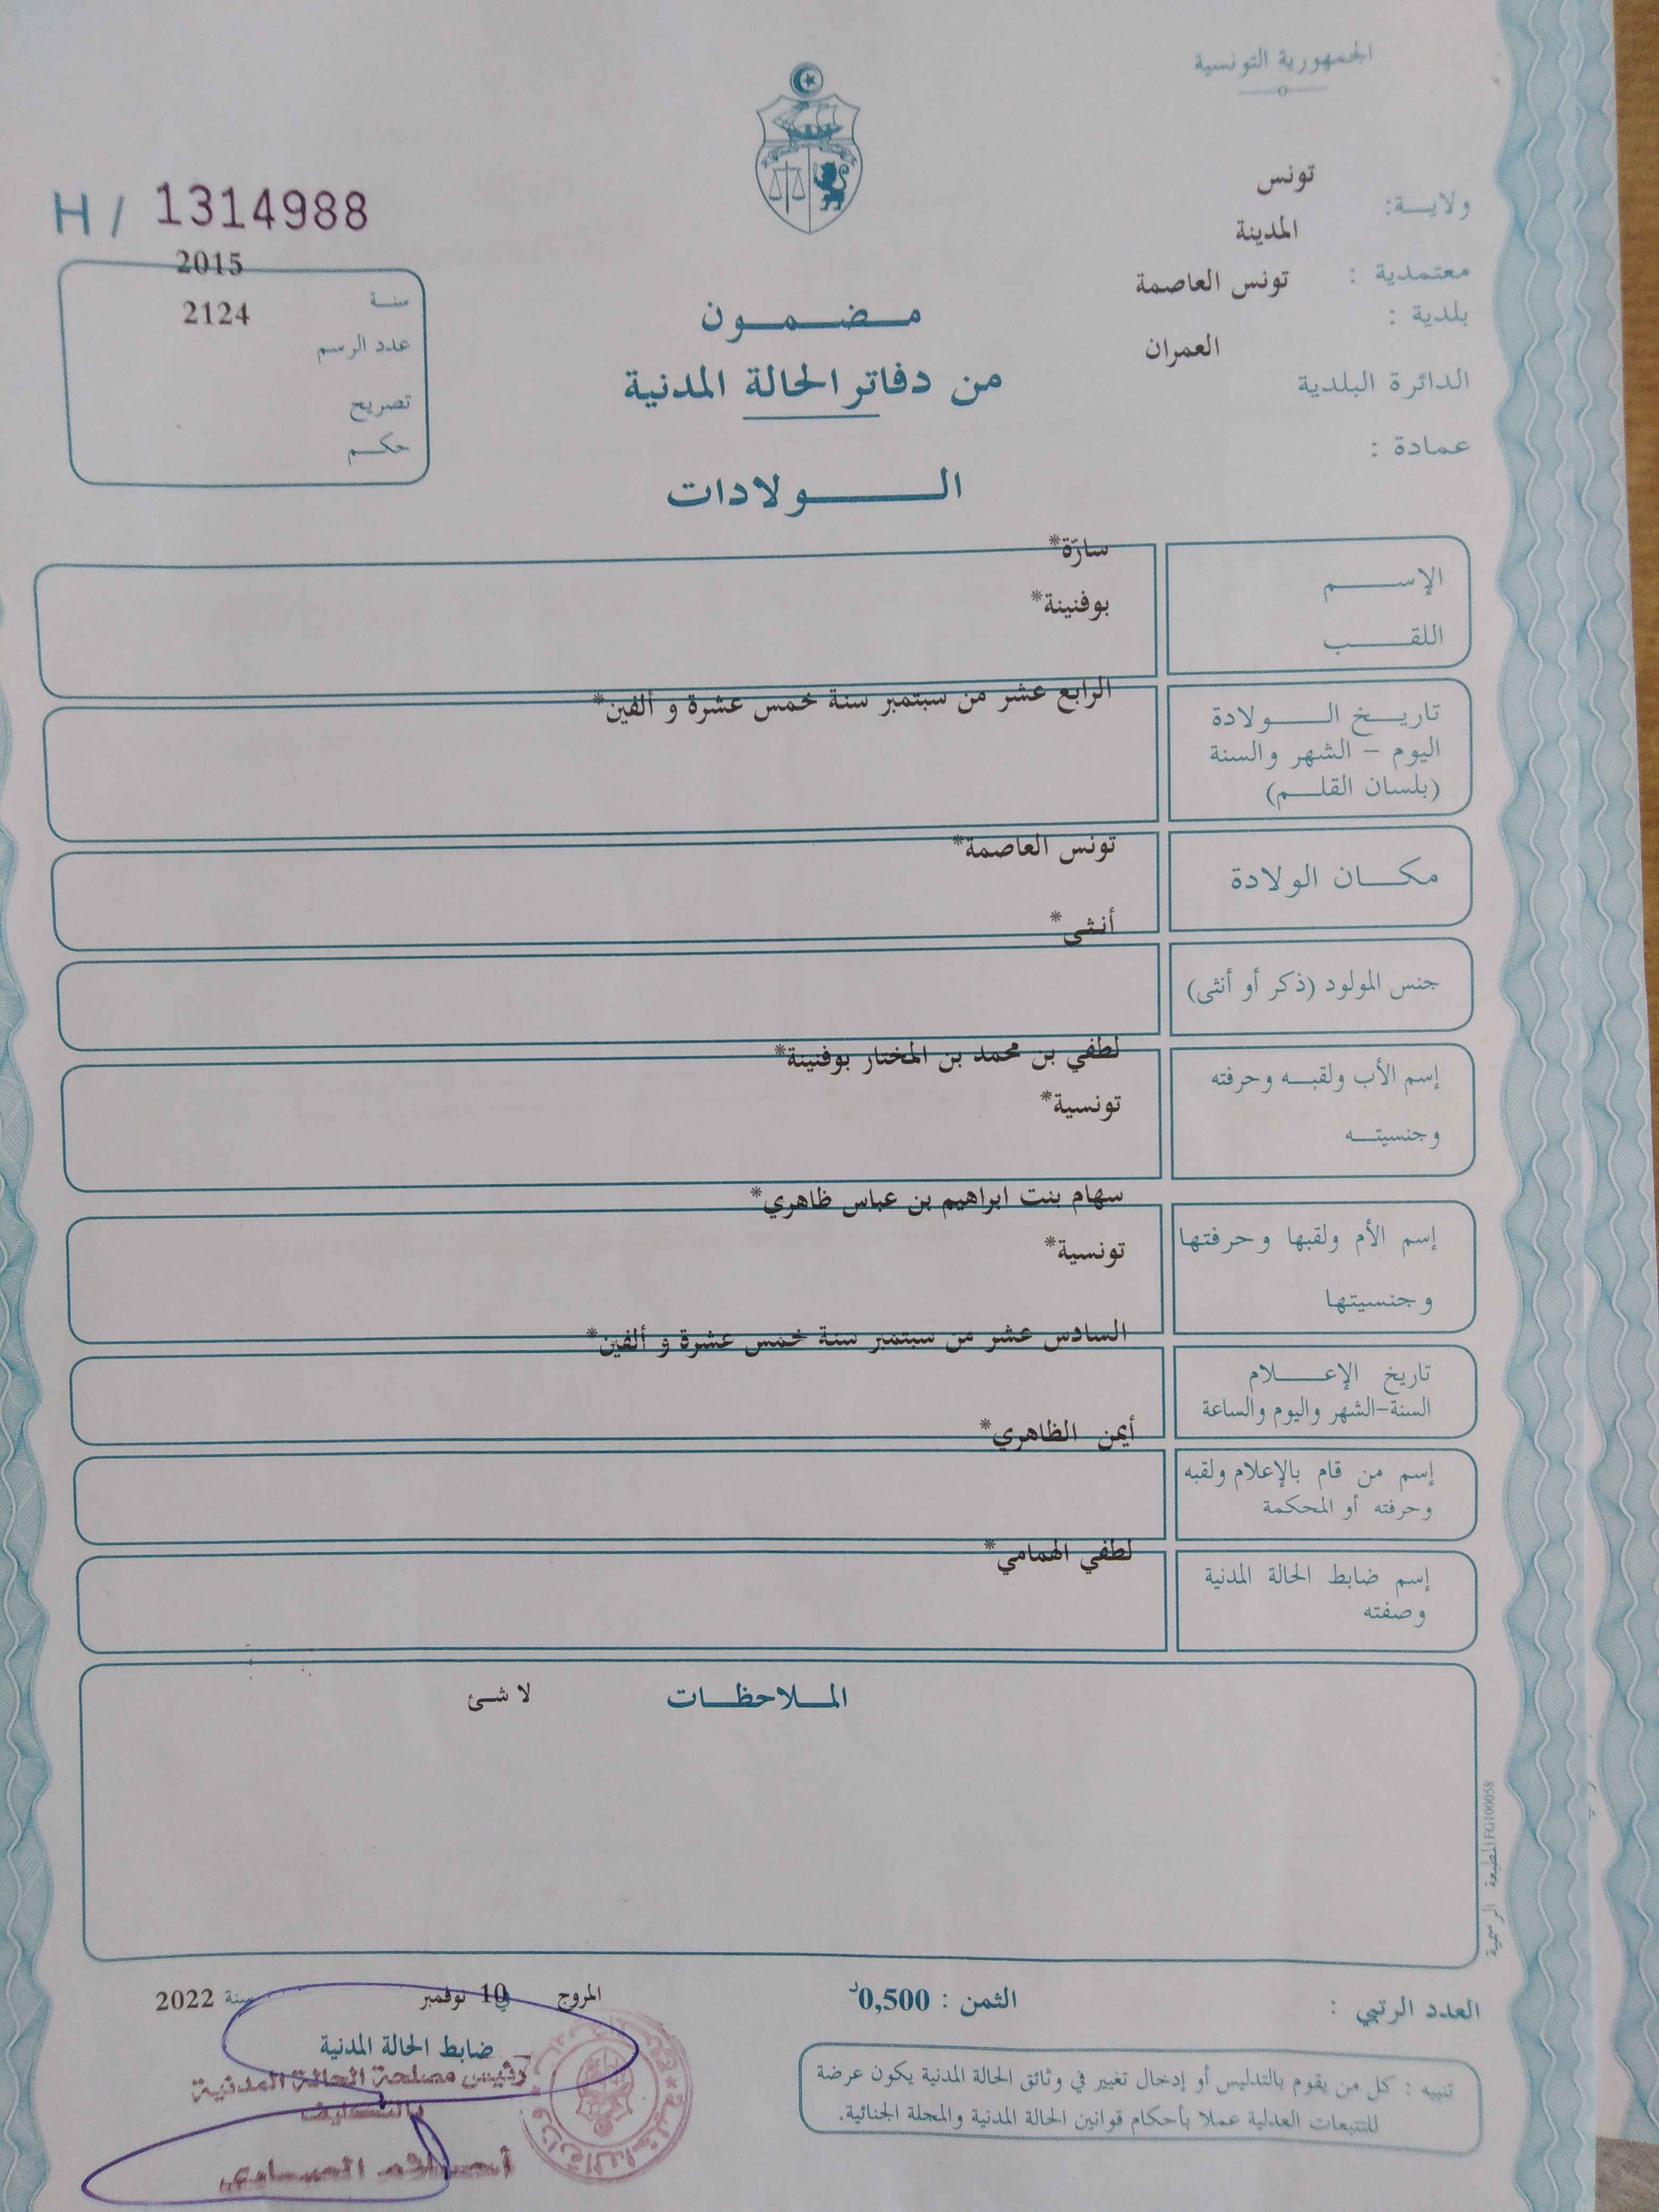 الجمهورية التونسية
ولايـــة: تونس
معتمدية : المدينة
بلدية : تونس العاصمة
الدائرة البلدية العمران
عمادة :
H / 1314988
سنـة 2015
عدد الرسم 2124
تصريح
حكـــم
مـــضـــمـــون
من دفاتر الحالة المدنية
الــــــولادات
الإســـــــم سارّة*
اللقـــــب بوفنينة*
تاريـــخ الـــــولادة الرابع عشر من سبتمبر سنة خمس عشرة و ألفين*
اليوم - الشهر والسنة
(بلسان القلـــم)
مكـــان الولادة تونس العاصمة*
جنس المولود (ذكر أو أنثى) أنثى*
إسم الأب ولقبـــه وحرفته لطفي بن محمد بن المختار بوفنينة*
وجنسيتـــه تونسية*
إسم الأم ولقبها وحرفتها سهام بنت ابراهيم بن عباس ظاهري*
وجنسيتها تونسية*
تاريخ الإعـــــلام السادس عشر من سبتمبر سنة خمس عشرة و ألفين*
السنة-الشهر واليوم والساعة
إسم من قام بالإعلام ولقبه أيمن الظاهري*
وحرفته أو المحكمة
إسم ضابط الحالة المدنية لطفي الهمامي*
وصفته
المـــلاحظـــات لا شئ
المطبعة الرسمية FG100058
العدد الرتبي :
الثمن : 0,500د
المروج في 10 نوفمبر سنة 2022
ضابط الحالة المدنية
رئيس مصلحة الحالة المدنية
بالتكليف
تنبيه : كل من يقوم بالتدليس أو إدخال تغيير في وثائق الحالة المدنية يكون عرضة
للتتبعات العدلية عملا بأحكام قوانين الحالة المدنية والمجلة الجنائية.